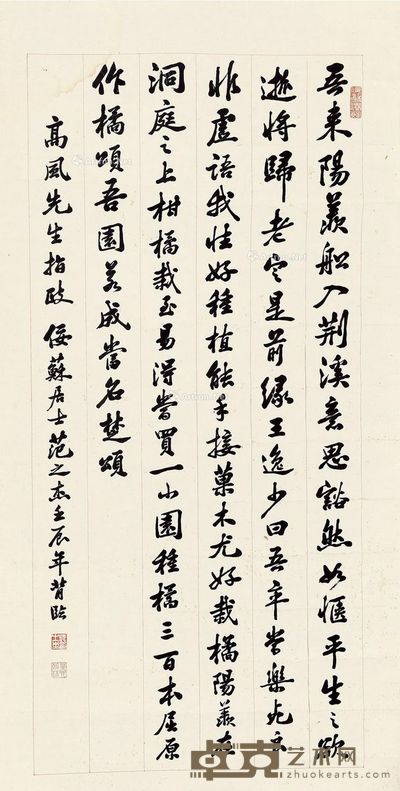 吾来陽羡船入荆溪意思豁然如惬平生之欲
逝将歸老它是前缘王逸少曰吾卒當樂死玄
非虚语我性好種植能手接菓木尤好栽橘陽羡在
洞庭之上柑橘栽至易得當買一小園種橘三百本屈原
作橘頌吾園若成當名楚頌
高風先生指政 佞蘇居士范之杰壬辰年背臨
卓克艺术网
zhuokearts.com